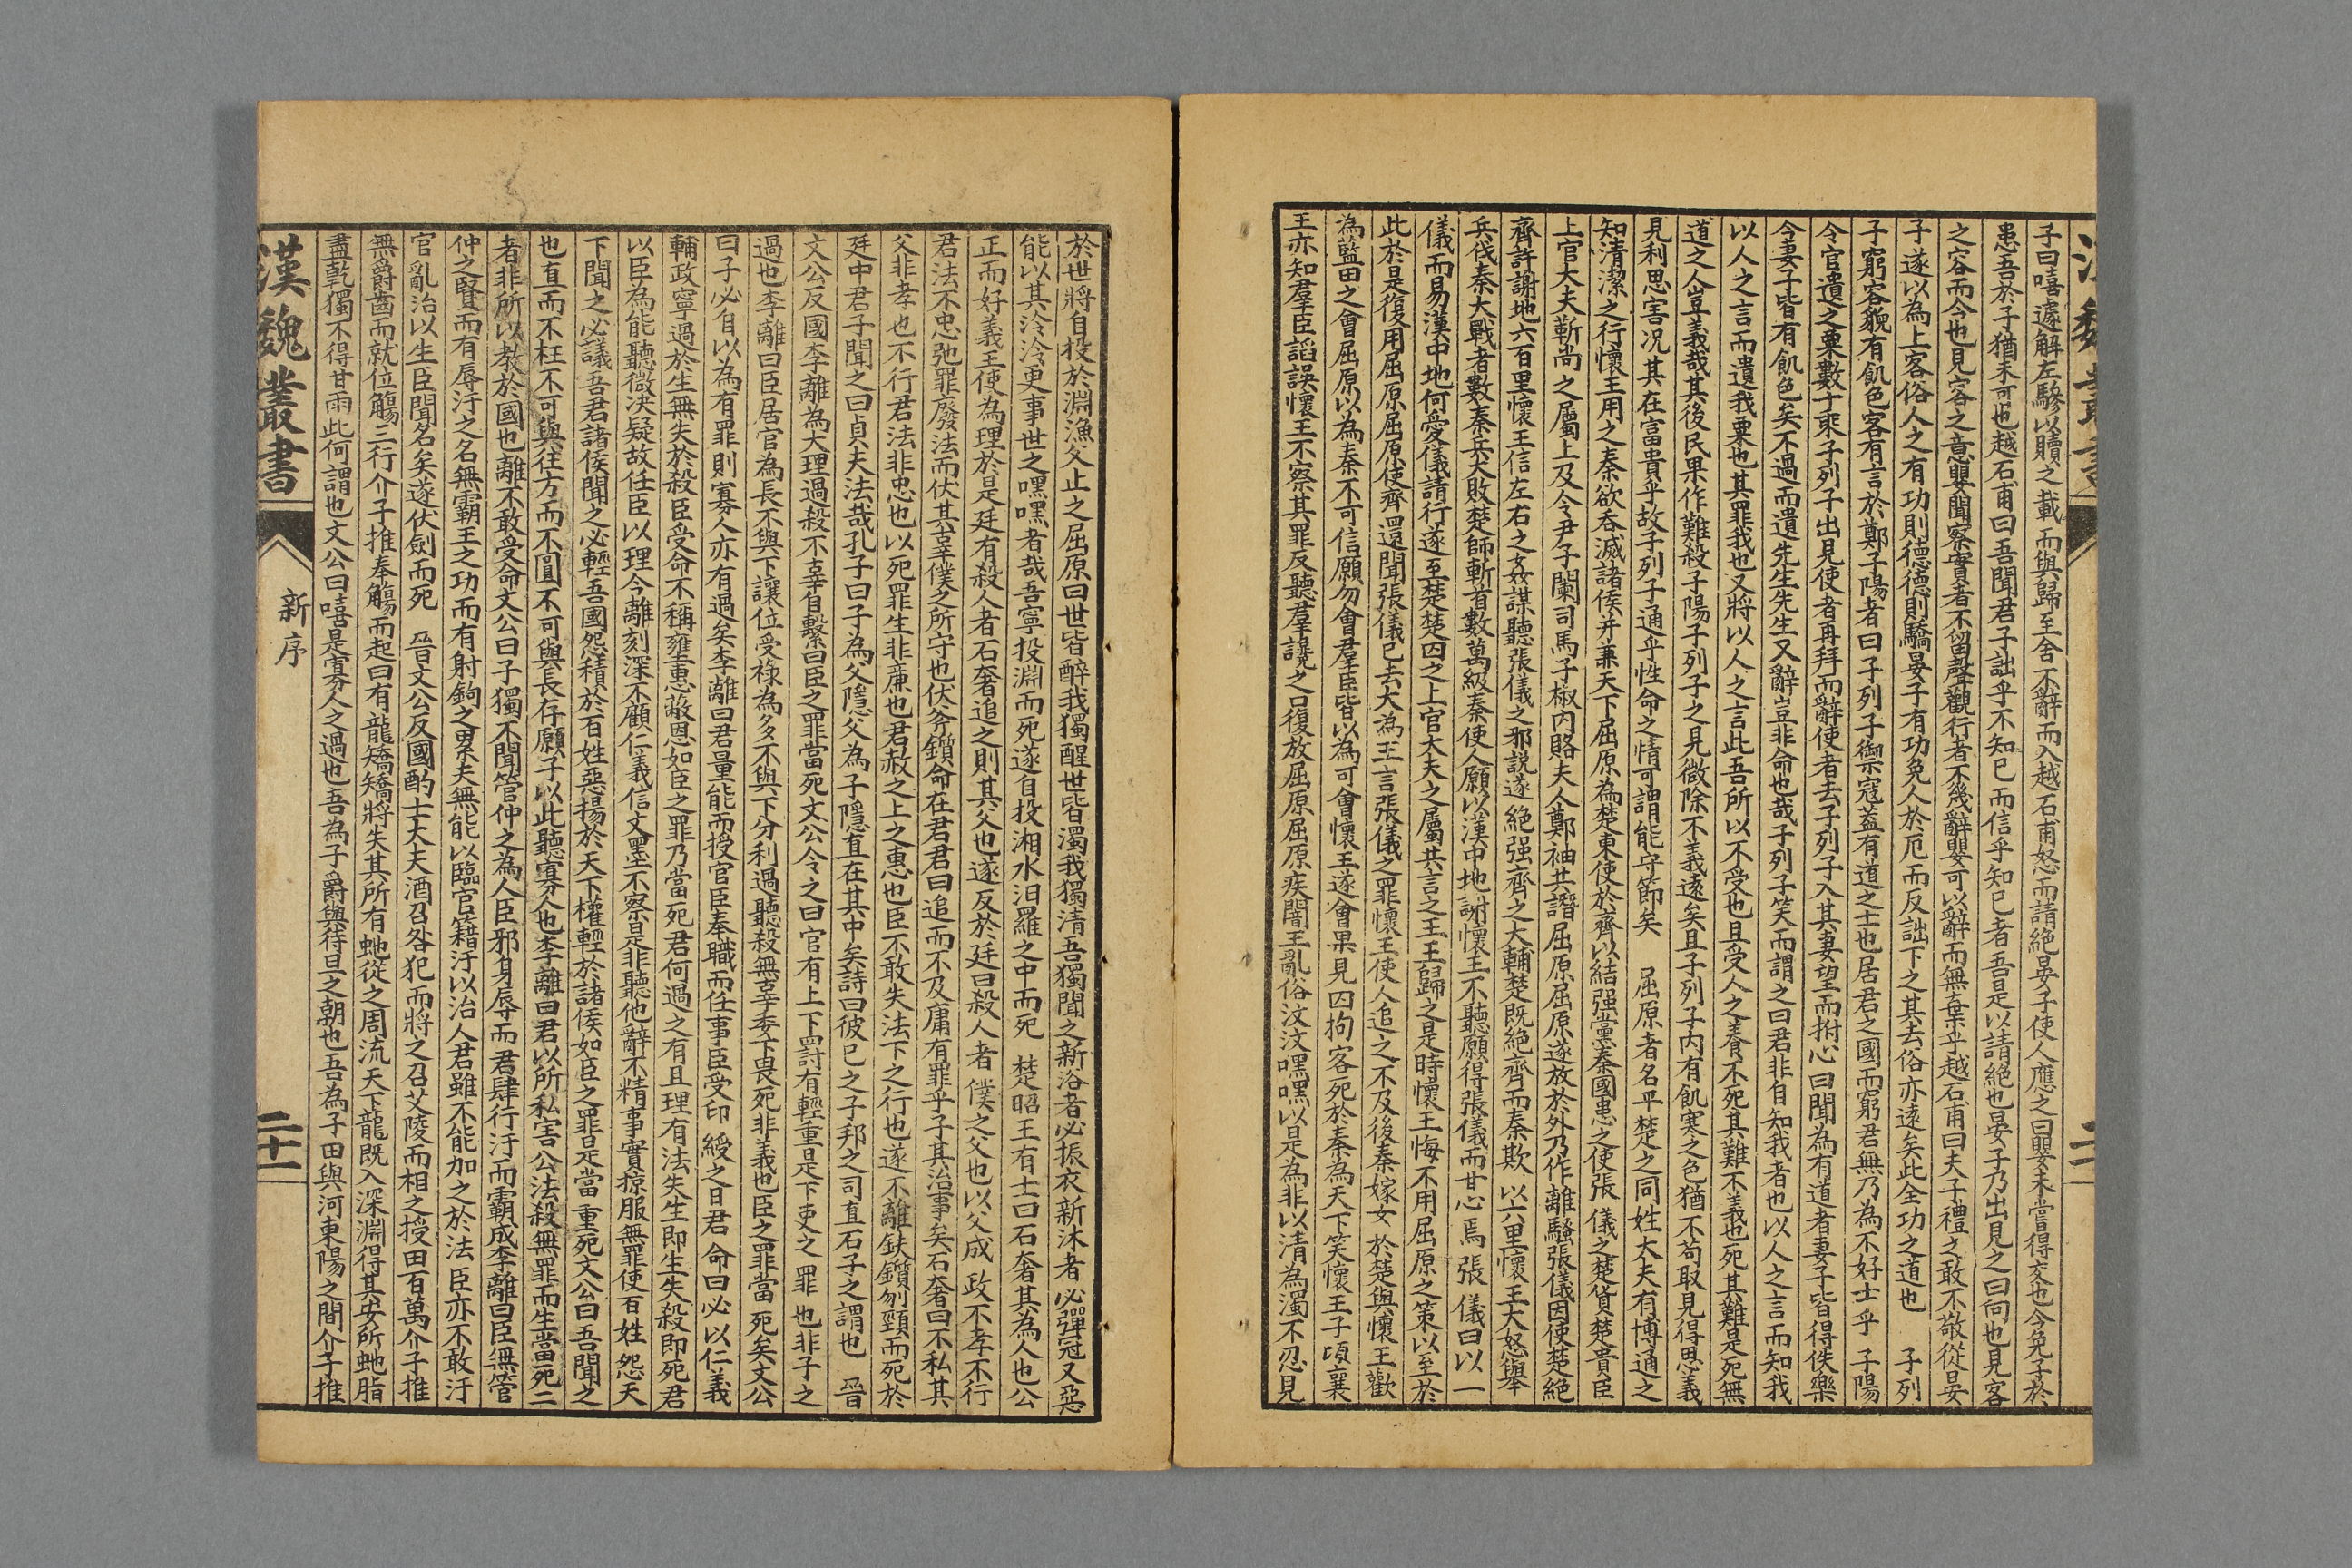 子曰嘻遽解左驂以贖之載而與歸至舍不辭而入越石甫怒而請絶晏子使人應之曰嬰未嘗得交也今免子於
患吾於子猶未可也越石甫曰吾聞君子詘乎不知已而信乎知已者吾是以請絶也晏子乃出見之曰向也見客
之容而今也見客之意嬰聞察實者不留聲觀行者不幾辭嬰可以辭而無棄乎越石甫曰夫子禮之敢不敬從晏
子遂以為上客俗人之有功則德德則驕晏子有功免人於厄而反詘下之其去俗亦遠矣此全功之道也　子列
子窮容貌有飢色客有言於鄭子陽者曰子列子禦寇蓋有道之士也居君之國而窮君無乃為不好士乎　子陽
令官遺之粟數十乘子列子出見使者再拜而辭使者去子列子入其妻望而拊心曰聞為有道者妻子皆得佚樂
今妻子皆有飢色矣不過而遺先生先生又辭豈非命也哉子列子笑而謂之曰君非自知我者也以人之言而知我
以人之言而遺我粟也其罪我也又將以人之言此吾所以不受也且受人之養不死其難不義也死其難是死無
道之人豈義哉其後民果作難殺子陽子列子之見微除不義遠矣且子列子內有飢寒之色猶不苟取見得思義
見利思害况其在富貴乎故子列子通乎性命之情可謂能守節矣　屈原者名平楚之同姓大夫有博通之
知清潔之行懷王用之秦欲吞滅諸侯并兼天下屈原為楚東使於齊以結强黨秦國患之使張儀之楚貨楚貴臣
上官大夫靳尚之屬上及令尹子闌司馬子椒內賂夫人鄭袖共譖屈原屈原遂放於外乃作離騷張儀因使楚絶
齊許謝地六百里懷王信左右之姦謀聽張儀之邪說遂絶强齊之大輔楚既絶齊而秦欺以六里懷王大怒舉
兵伐秦大戰者數秦兵大敗楚師斬首數萬級秦使人願以漢中地謝懷王不聽願得張儀而甘心焉張儀曰以一
儀而易漢中地何愛儀請行遂至楚楚囚之上官大夫之屬共言之王王歸之是時懷王悔不用屈原之策以至於
此於是復用屈原屈原使齊還聞張儀已去大為王言張儀之罪懷王使人追之不及後秦嫁女於楚與懷王歡
為藍田之會屈原以為秦不可信願勿會羣臣皆以為可會懷王遂會果見囚拘客死於秦為天下笑懷王子頃襄
王亦知羣臣謟誤懷王不察其罪反聽羣讒之口復放屈原屈原疾闇王亂俗汶汶嘿嘿以是為非以清為濁不忍見
於世將自投於淵漁父止之屈原曰世皆醉我獨醒世皆濁我獨清吾獨聞之新浴者必振衣新沐者必彈冠又惡
能以其泠泠更事世之嘿嘿者哉吾寧投淵而死遂自投湘水汨羅之中而死　楚昭王有士曰石奢其為人也公
正而好義王使為理於是廷有殺人者石奢追之則其父也遂反於廷曰殺人者僕之父也以父成政不孝不行
君法不忠弛罪廢法而伏其辜僕之所守也伏斧鑕命在君君曰追而不及庸有罪乎子其治事矣石奢曰不私其
父非孝也不行君法非忠也以死罪生非廉也君赦之上之惠也臣不敢失法下之行也遂不離鈇鑕刎頸而死於
廷中君子聞之曰貞夫法哉孔子曰子為父隱父為子隱直在其中矣詩曰彼己之子邦之司直石子之謂也　晉
文公反國李離為大理過殺不辜自繫曰臣之罪當死文公令之曰官有上下罰有輕重是下吏之罪也非子之
過也李離曰臣居官為長不與下讓位受祿為多不與下分利過聽殺無辜委下畏死非義也臣之罪當死矣文公
曰子必自以為有罪則寡人亦有過矣李離曰君量能而授官臣奉職而任事臣受印綬之日君命曰必以仁義
輔政寧過於生無失於殺臣受命不稱壅惠蔽恩如臣之罪乃當死君何過之有且理有法失生即生失殺即死君
以臣為能聽微決疑故任臣以理今離刻深不顧仁義信文墨不察是非聽他辭不精事實掠服無罪使百姓怨天
下聞之必議吾君諸侯聞之必輕吾國怨積於百姓惡揚於天下權輕於諸侯如臣之罪是當重死文公曰吾聞之
也直而不枉不可與往方而不圓不可與長存願子以此聽寡人也李離曰君以所私害公法殺無罪而生當死二
者非所以教於國也離不敢受命文公曰子獨不聞管仲之為人臣邪身辱而君肆行汙而霸成李離曰臣無管
仲之賢而有辱汙之名無霸王之功而有射鉤之累夫無能以臨官籍汙以治人君雖不能加之於法臣亦不敢汙
官亂治以生臣聞名矣遂伏劍而死　晉文公反國酌士大夫酒召咎犯而將之召艾陵而相之授田百萬介子推
無爵齒而就位觴三行介子推奉觴而起曰有龍矯矯將失其所有虵從之周流天下龍既入深淵得其安所虵脂
盡乾獨不得甘雨此何謂也文公曰嘻是寡人之過也吾為子爵與待旦之朝也吾為子田與河東陽之間介子推
漢魏叢書
新序
二十一